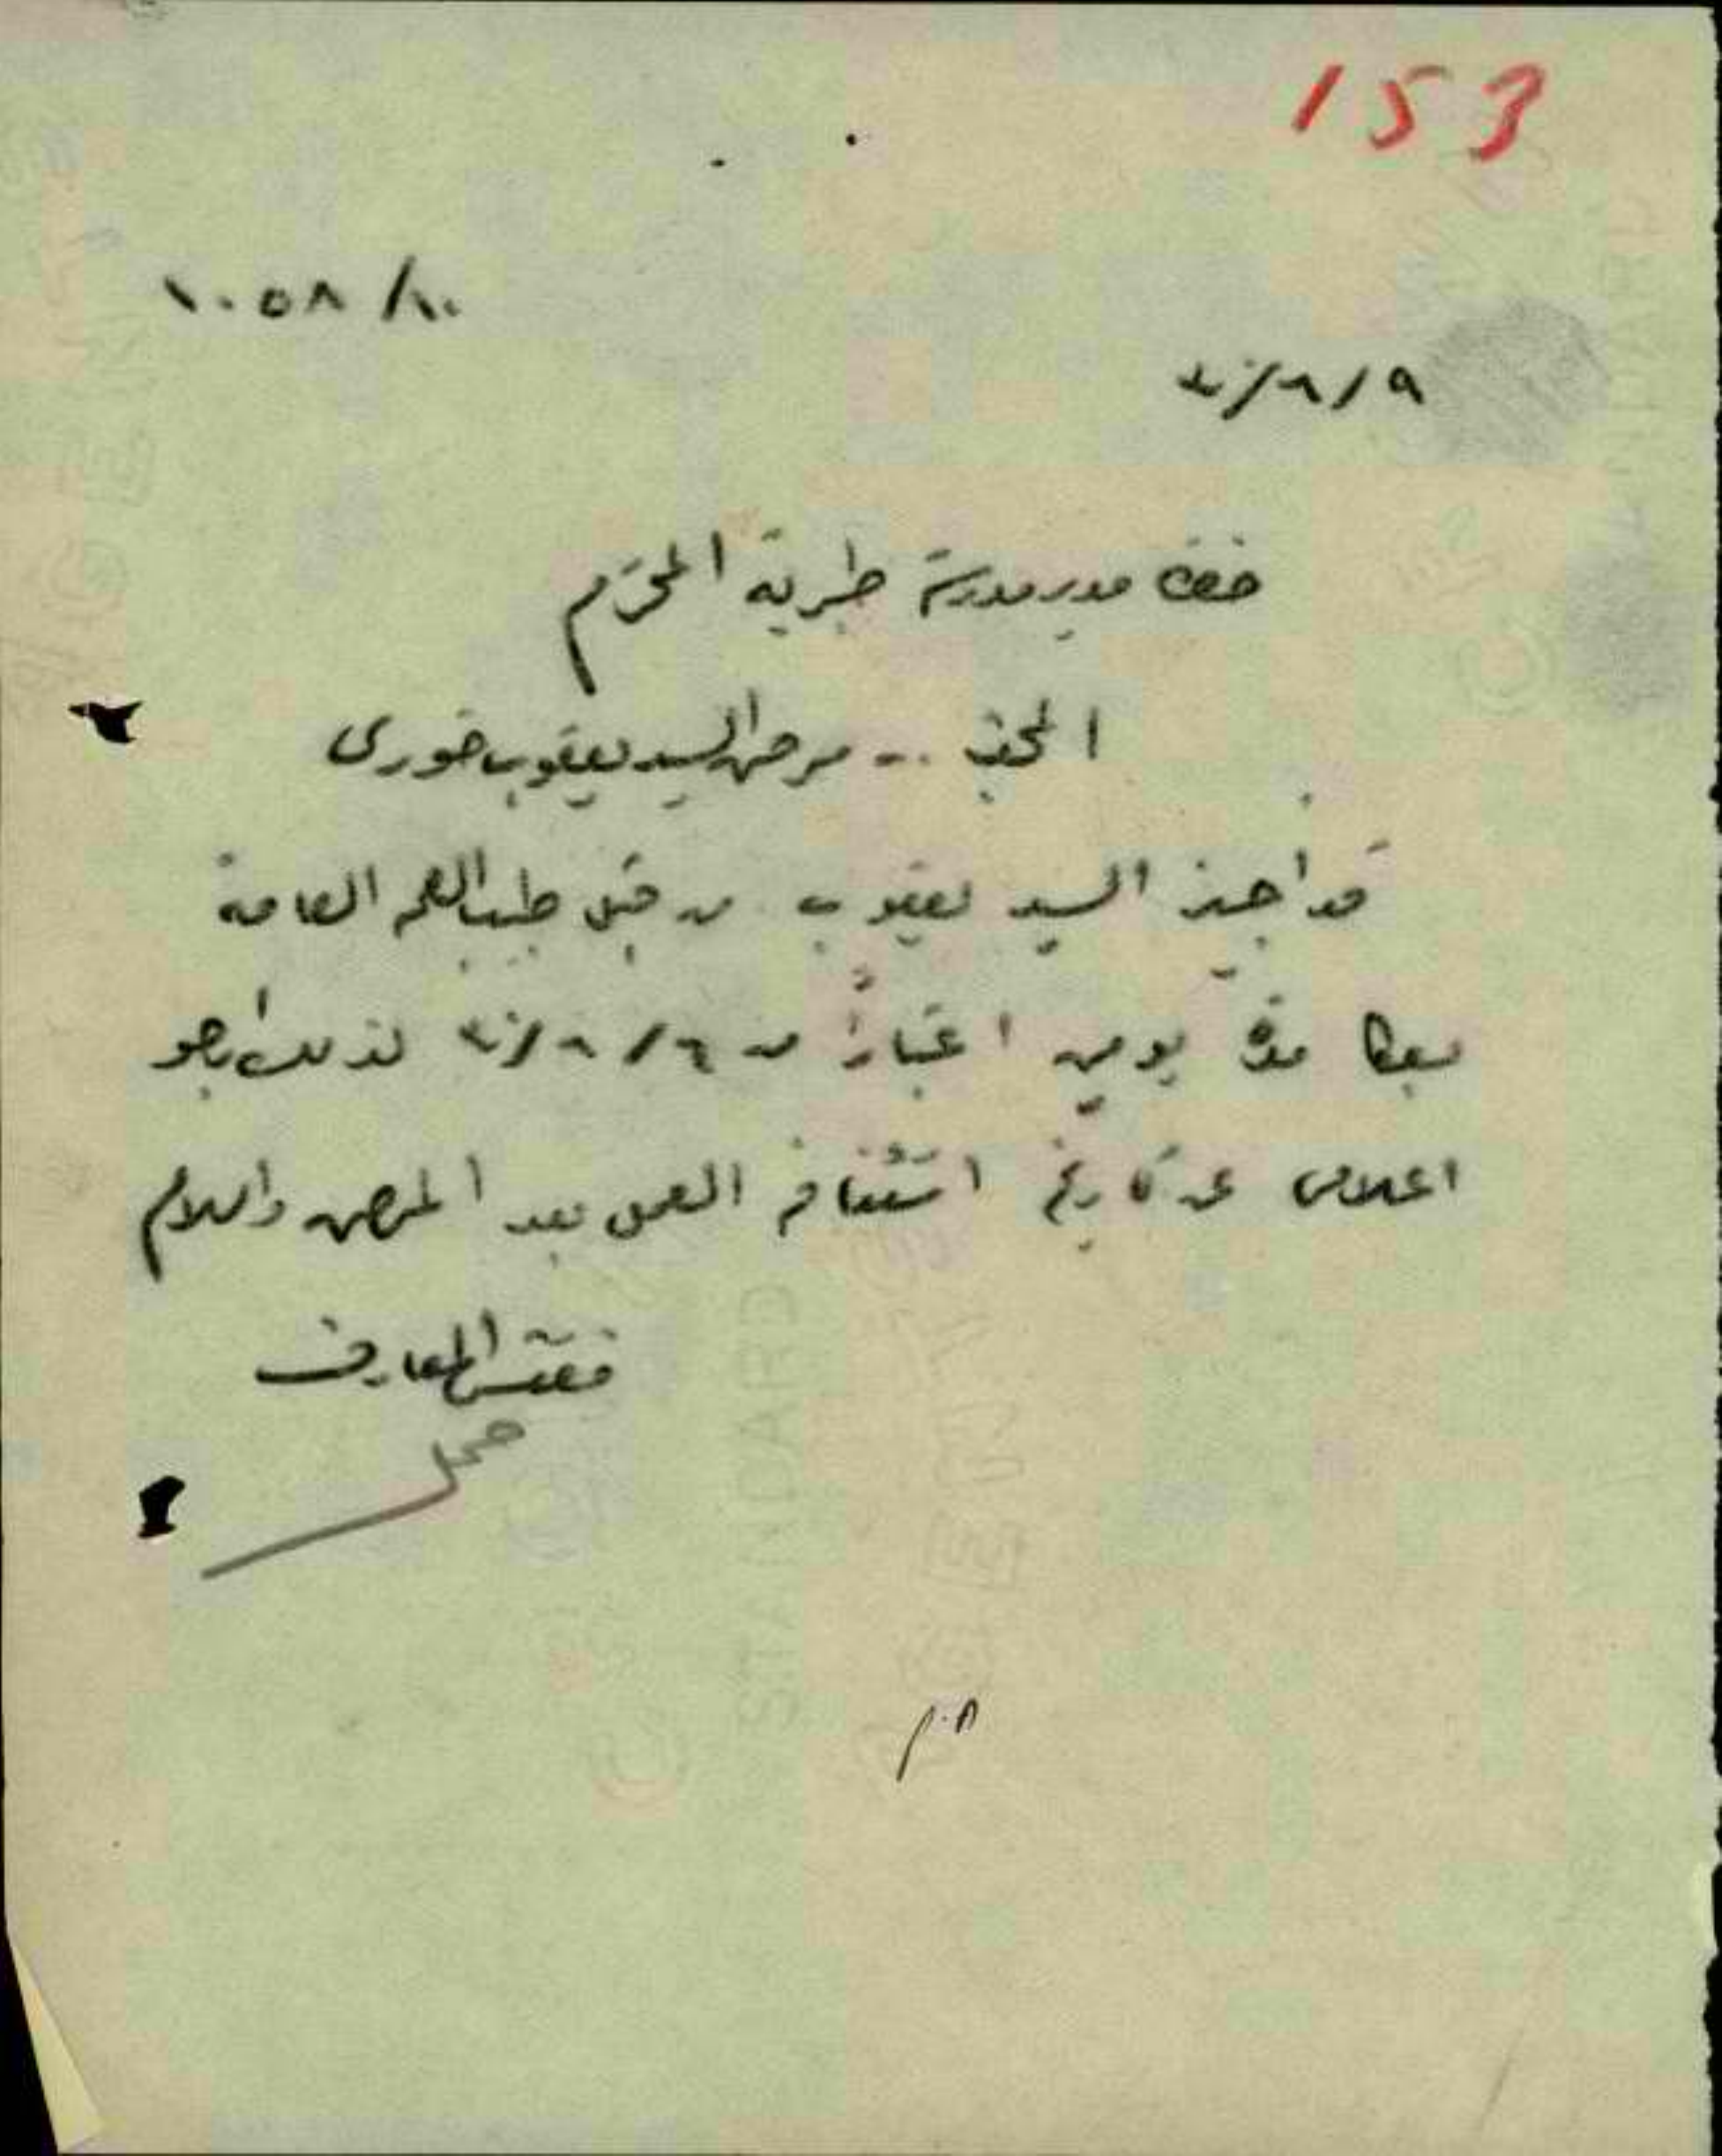 153
١٠٥٨/١٠
٣٠/٨/٩
حضرة مدير مدرسة طبرية المحترم
المبحث .. مرض السيد يعقوب خوري
قد اجيز السيد يعقوب من قبل طبيب الصحة العامة
مدة يومين اعتباراً من ٣٠/٨/٦ لذلك ارجو
اعلامي عن تاريخ استئنافه العمل بعد المرض والسلام
مفتش المعارف